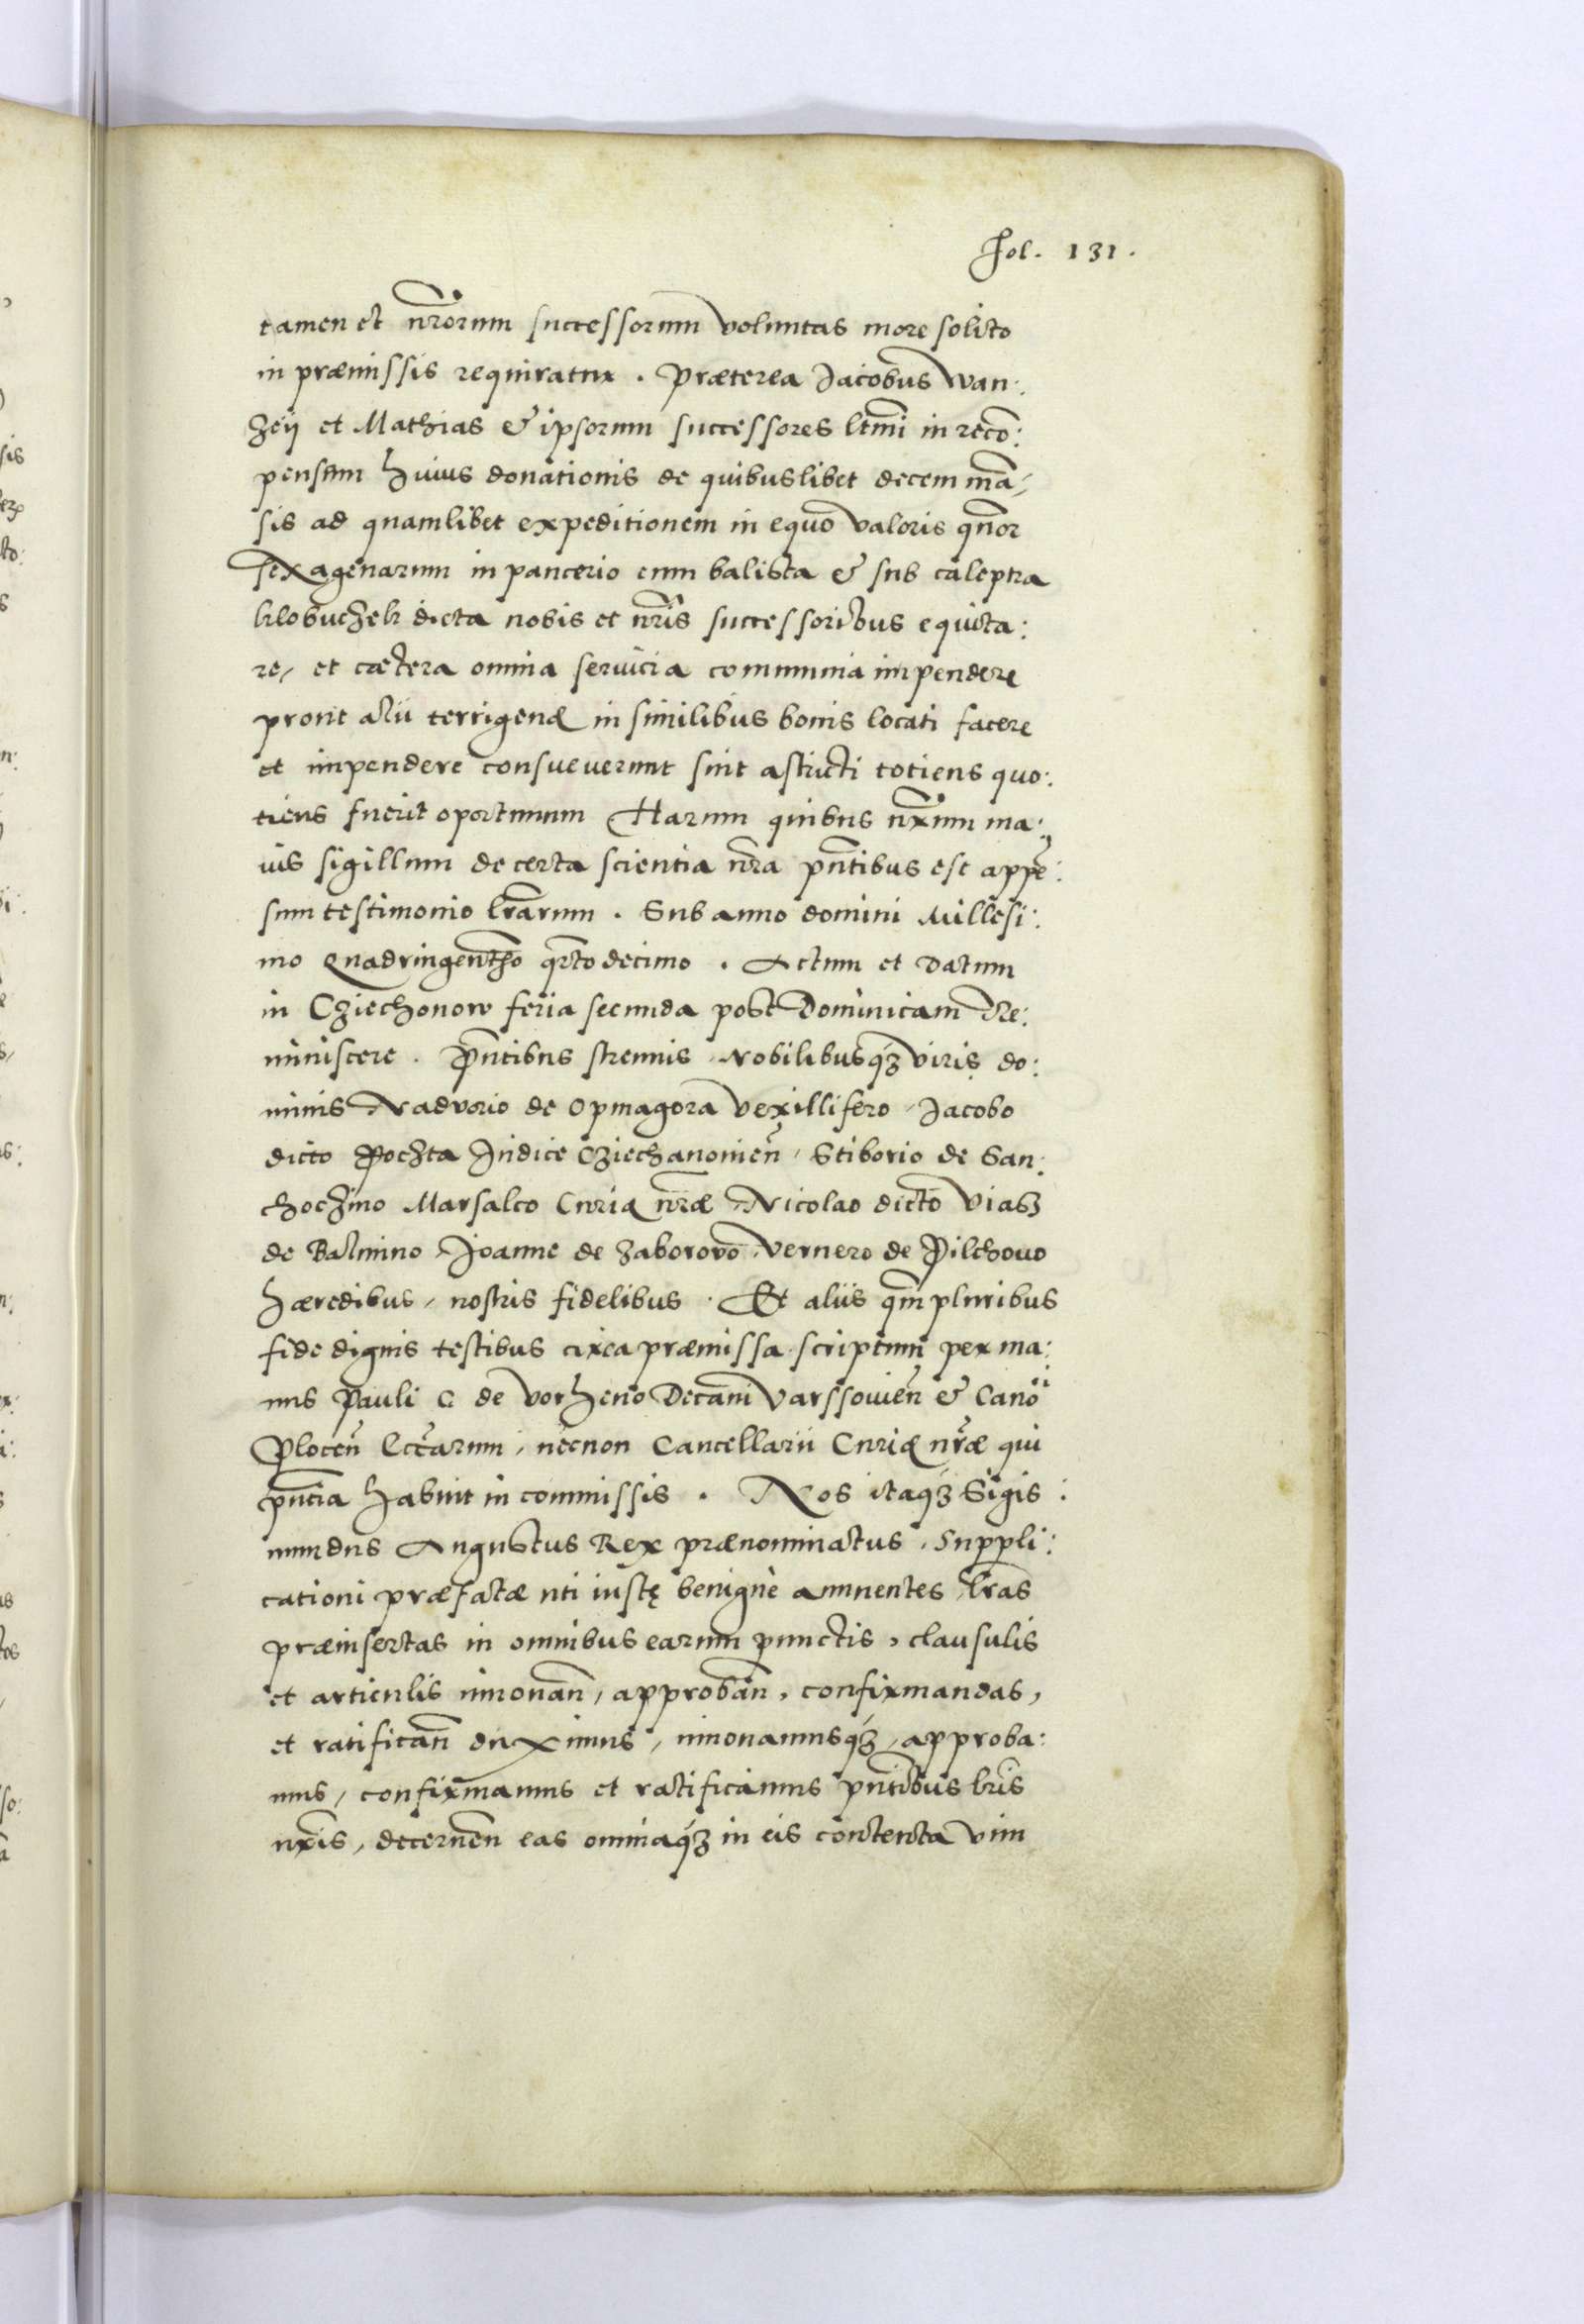 Fol. 131.
tamen et nr̃orum successorum voluntas more solito
in præmissis requiratur. Præterea Jacobus Wan:
zeÿ et Mathias & ipsorum successores ltm̃i in recõ:
pensam huius donationis de quibuslibet decem mã,
sis ad quamlibet expeditionem in equo valoris qũor
sexagenarum in pancerio cum balista & sub caleptra
klobuczek dicta nobis et nr̃is successoribus equita:
re, et cætera omnia servicia communia impendere
prout alii terrigenæ in similibus bonis locati facere
et impendere consueverunt sint astricti totiens quo:
tiens fuerit oportunum Harum quibus nr̃um ma:
ius sigillum de certa scientia nr̃a pñtibus est appẽ:
sum testimonio lr̃arum. Sub anno domini Millesi:
mo Quadringent̃ho qr̃to decimo. Actum et Datum
in Cziechonow feria secunda post Dominicam Re:
miniscere. Pñtibus strenuis Nobilibusq́ʒ viris do:
minis Nadvorio de Opinagora vexillifero, Jacobo
dicto Poczta Judice Cziechanovieñ, Stiborio de San:
choczino Marsalco Curiæ nr̃æ, Nicolao dicto Viasz
de Balmino, Joanne de Zaborovo, Vernero de Pilchovo
hæredibus, nostris fidelibus. Et aliis qm̃pluribus
fide dignis testibus circa præmissa. scriptum per ma:
nus Pauli C de Vorzeno Decani Varssovieñ & Canõi
Ploceñ Ecc̃arum, necnon Cancellarii Curiæ nr̃æ qui
pñtia habuit in commissis. Nos itaq́ʒ Sigis:
mundus Augustus Rex prænominatus, Suppli:
cationi præfatæ uti iustę benignè annuentes, lr̃as
præinsertas in omnibus earum punctis, clausulis
et articulis innovañ, approbañ, confirmandas,
et ratificañ duximus, innovamusq́ʒ, approba:
mus, confirmamus et ratificamus pñtibus lr̃is
nr̃is, decerneñ eas omniaq́ʒ in eis contenta vim